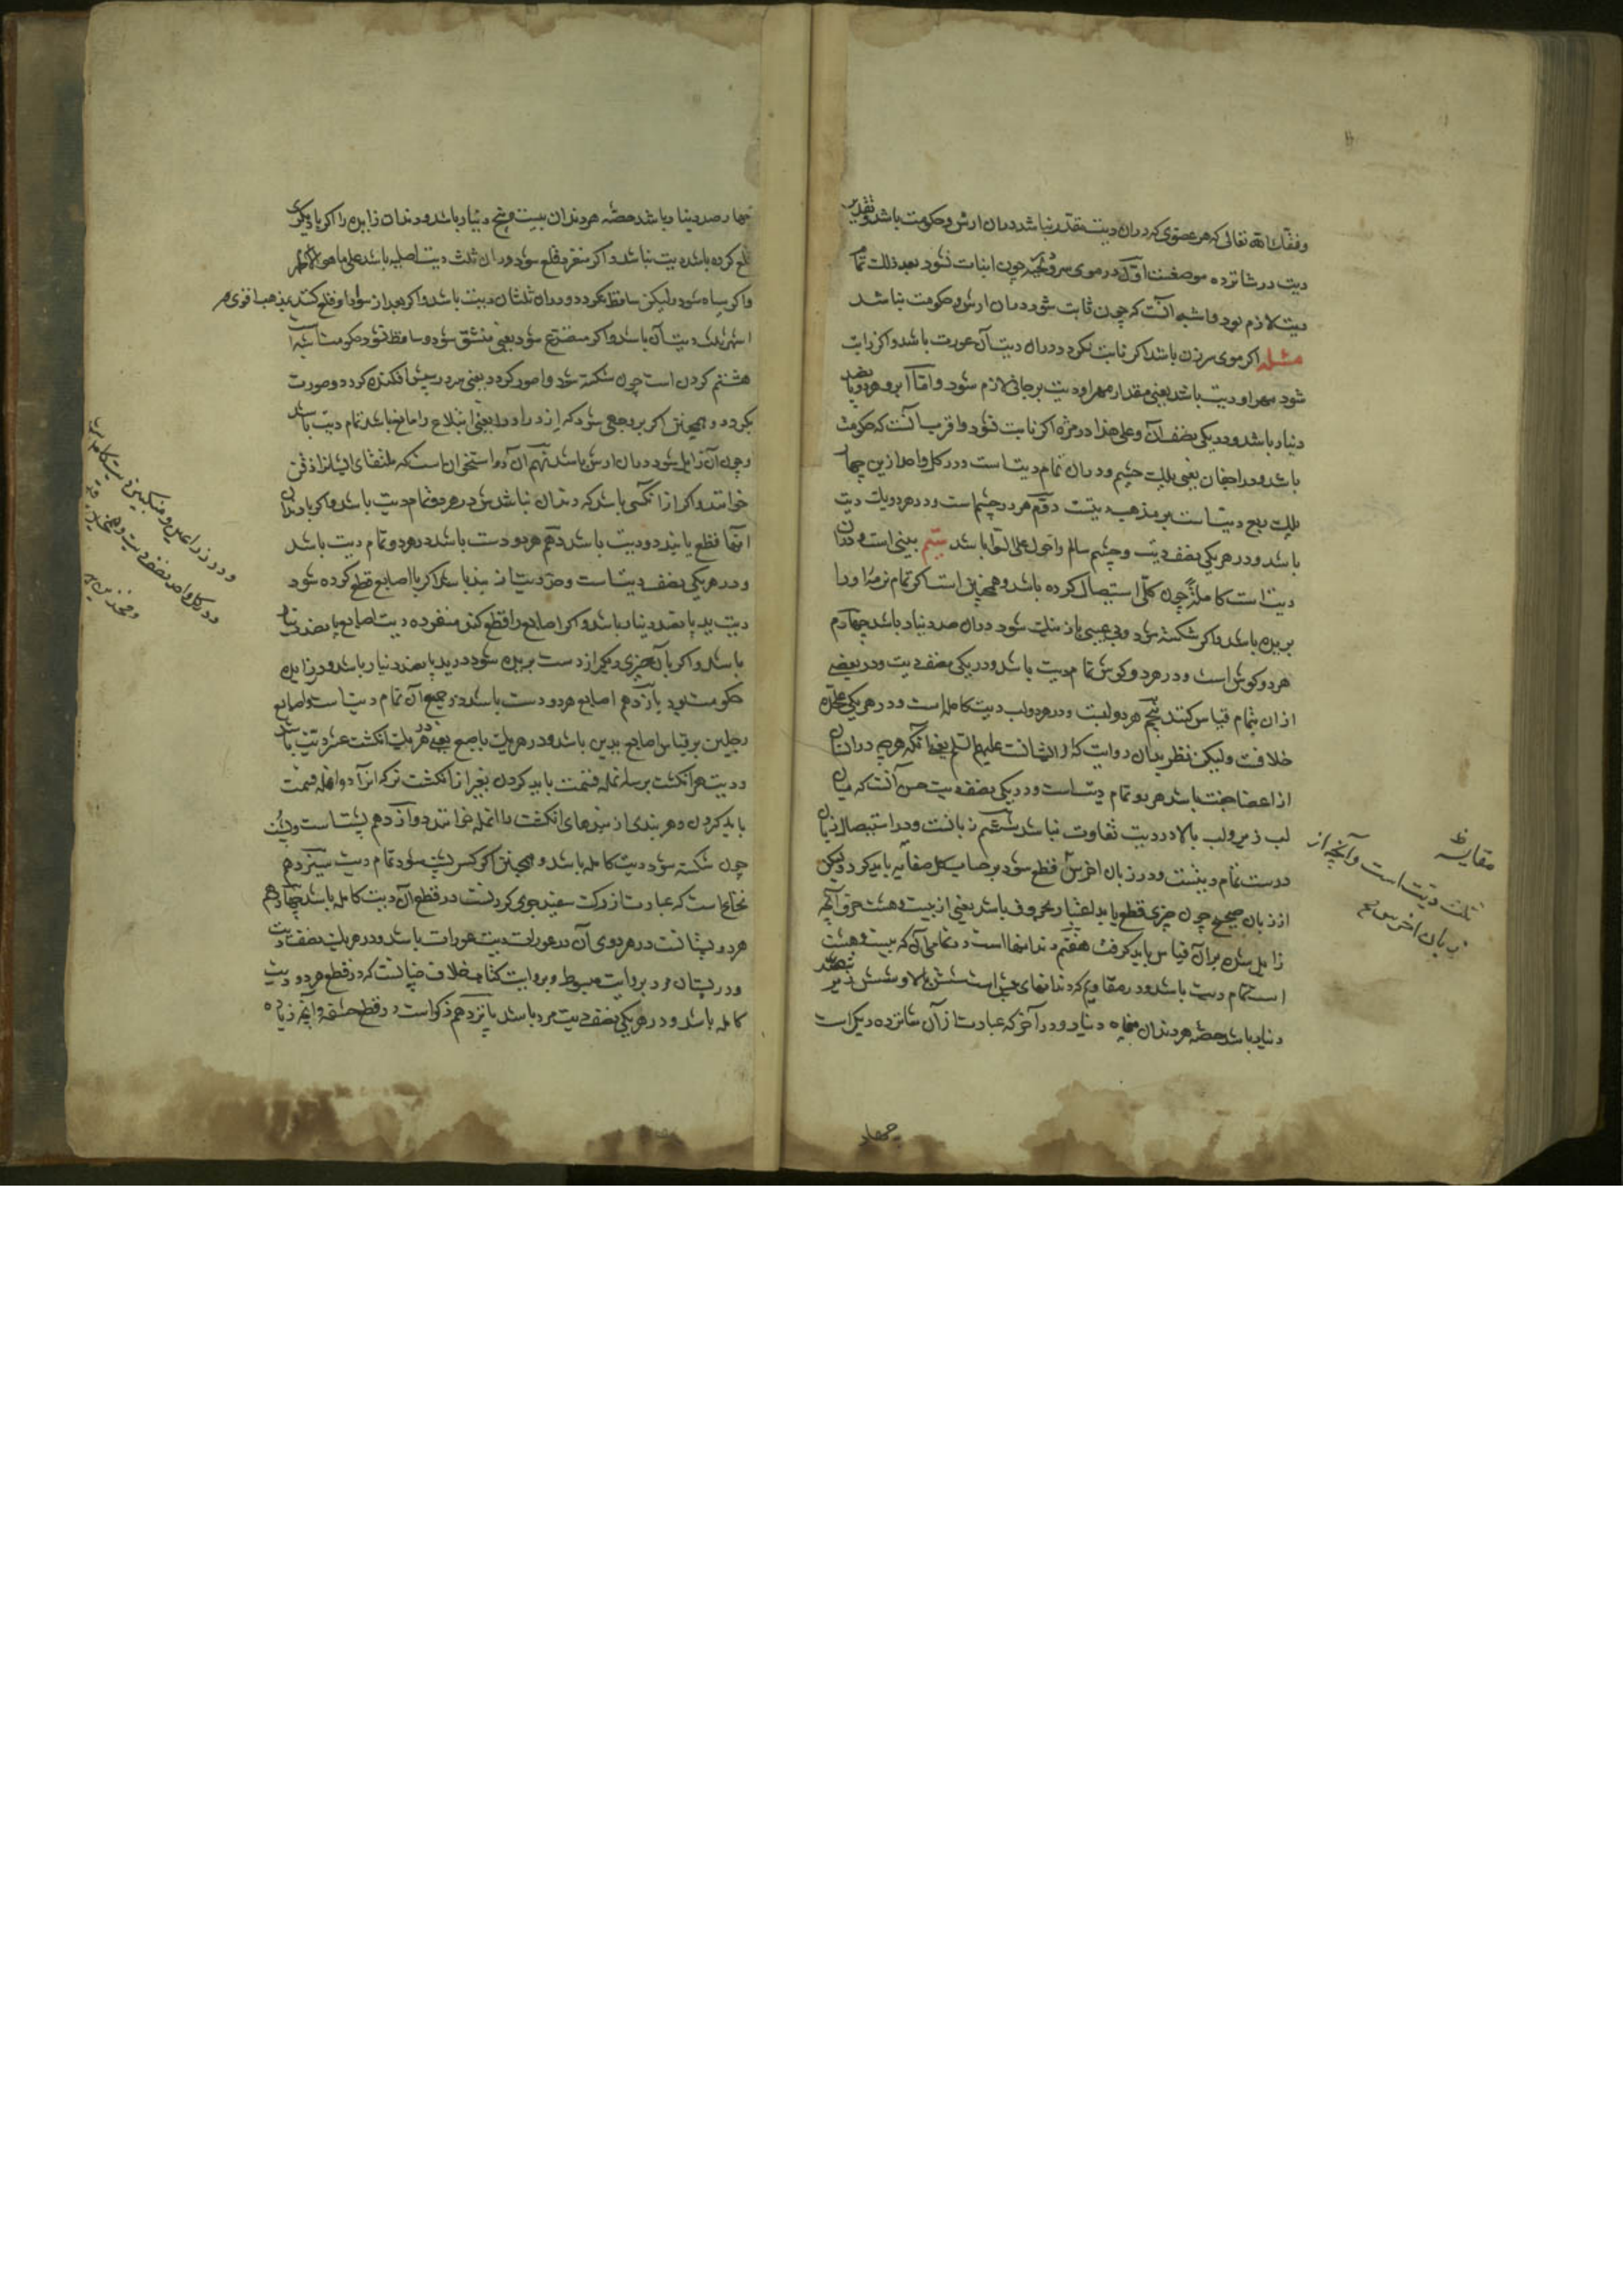 وفقك الله تعالی که هر عضوی که در ان دیت مقدر نباشد در ان ارش و حکومت باشد و تقدیر
دیت در شانزده موضعست اول در موی سر و لحیه چون انبات نشود بعد ذلك تمام
دیت لازم بود و اشبه آنست که چون ثابت شود در ان ارش و حکومت باشد
مسئله اگر موی سر زن باشد اگر نابت نکردد در ان دیت آن عورت باشد و اگر نابت
شود مهر او دیت باشد یعنی مقدار مهر او دیت بر جانی لازم شود و اما ابرو هر دو پانصد
دینار باشد و در یکی نصف آن و علی هذا در مژه اکر نابت نشود و اقرب آنست که حکومت
باشد و در اجفان یعنی پلك چشم و در ان تمام دیت است و در کل واحد ازین چهار
پلك ربع دیت است بر مذهب دوم هر دو چشم است و در هر دو یك دیت
باشد و در هر یکی نصف دیت و چشم سالم و احول علی السوا باشد سیم بینی است و در ان
دیت است کاملا چون کلی استیصال کرده باشد و همچنین است اکر تمام نرمه او را
بریده باشد و اکر شکسته شود و بی عیبی باز نیك شود در ان صد دینار باشد چهارم
هر دو کوش است و در هر دو کوش تمام دیت باشد و در یکی نصف دیت و در بعضی
از ان بتمام قیاس کنند پنجم هر دو لبست و در هر دو لب دیت کامله است و در هر یکی علیحده
خلافست و لیکن نظر بدان روایت که از ایشانست علیهم السلم یعنی انکه هر چه در انسان
از اعضا جفت باشد هر دو تمام دیت است و در یکی نصف دیت حسن آنست که میان
لب زیر و لب بالا در دیت تفاوت نباشد ششم زبانست و در استیصال زبان
درست تمام دیتست و در زبان اخرس قطع شود بر حساب کل باید کرد و لیکن
از زبان صحیح چون چیزی قطع یابد اعتبار بحروف باشد یعنی از بیست و هشت حرف آنچه
زایل شده بر ان قیاس باید کرفت هفتم دندانها است و تمامی آن که بیست و هشت
است تمام دیت باشد و در مقادیم که دندانهای پیش است شش بالا و شش زیر ششصد
دینار باشد حصه هر دندان پنجاه دینار و در آخر که عبارت از آن شانزده دیکر است
مقایسه
ثلث دیت است و آنچه از
زبان اخرس
چهار
چهار صد دینار باشد حصه هر دندان بیست و پنج دینار باشد و دندان زایده را اکر با دیکری
قلع کرده باشد دیت نباشد و اکر منفرد قلع شود در ان ثلث دیت اصلیه باشد علی ما هی
و اکر سیاه شود و لیکن ساقط نکردد در ان ثلثان دیت باشد و اکر بعد از سواد او قلع کند بمذهب اقوی و
اشهر ثلث دیت آن باشد و اکر متصدع شود یعنی منشق شود و ساقط نشود حکومت
هشتم کردن است چون شکسته شود و اصور کردد یعنی سر در پیش افکنده کردد و صورت
بکردد و همچنین اکر بر وجهی شود که ازدراد را یعنی ابتلاع را مانع باشد تمام دیت باشد
و چون آن زایل شود در ان ارش باشد نهم آن دو استخوان است که ملتقای ایشانرا ذقن
خوانند و اکر از آنکسی باشد که دندان نباشدش در هر دو تمام دیت باشد و اکر با دندان
آنها قطع یابند دو دیت باشد دهم هر دو دست باشد در هر دو تمام دیت باشد
و در هر یکی نصف دیت است و حد دست از بند باشد اکر با اصابع قطع کرده شود
دیت ید پانصد دینار باشد و اکر اصابع را قطع کنند منفرده دیت اصابع پانصد دینار
باشد و اکر با آن چیزی دیکر از دست بریده شود در ید پانصد دینار باشد و در زایده
حکومت بود یازدهم اصابع هر دو دست باشد در جمیع آن تمام دیت است و اصابع
رجلین بر قیاس اصابع یدین باشد و در هر یك یعنی در هر یك انکشت عشر دیت باشد
و دیت هر انکشت بر سه انمله قسمت باید کردن بغیر از انکشت نر که انرا دو انمله قسمت
باید کردن و هر بندی از بندهای انکشت را انمله خوانند دوازدهم پشت است و پشت
چون شکسته شود دیت کامله باشد و همچنین اکر کسر پشت شود تمام دیت سیزدهم
نخاع است که عبارت از رکت سفید در قطع آن دیت کامله باشد چهاردهم
هر دو پستانست در هر دوی آن در عورات دیت عورات باشد و در هر یك نصف دیت
و در پستان مرد بروایت مبسوط و بروایت کتاب خلاف چنانست که در قطع هر دو دیت
کامله باشد و در هر یکی نصف دیت مرد باشد پانزدهم ذکر است و در قطع حشفه و آنچه زیاده
و در ذراعین و منکبین دیت کامله
و در کل واحد نصف دیت و